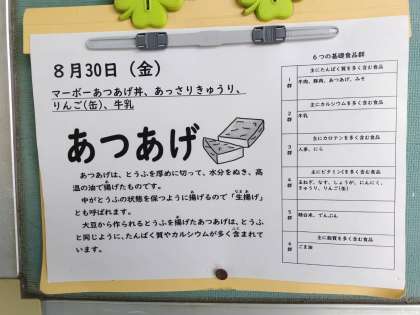 8月30日（金）
マーボーあつあげ丼、あっさりきゅうり、
りんご（缶）、牛乳
あつあげ
あつあげは、とうふを厚めに切って、水分をぬき、高
温の油で揚げたものです。
中がとうふの状態を保つように揚げるので「生揚げ」
とも呼ばれます。
大豆から作られるとうふを揚げたあつあげは、とうふ
と同じように、たんぱく質やカルシウムが多く含まれて
います。
６つの基礎食品群
1群
主にたんぱく質を多く含む食品
牛肉、豚肉、あつあげ、みそ
2群
主にカルシウムを多く含む食品
牛乳
3群
主にカロテンを多く含む食品
人参、にら
4群
主にビタミンCを多く含む食品
玉ねぎ、なす、しょうが、にんにく、
きゅうり、りんご（缶）
5群
精白米、でんぷん
6群
主に脂質を多く含む食品
ごま油